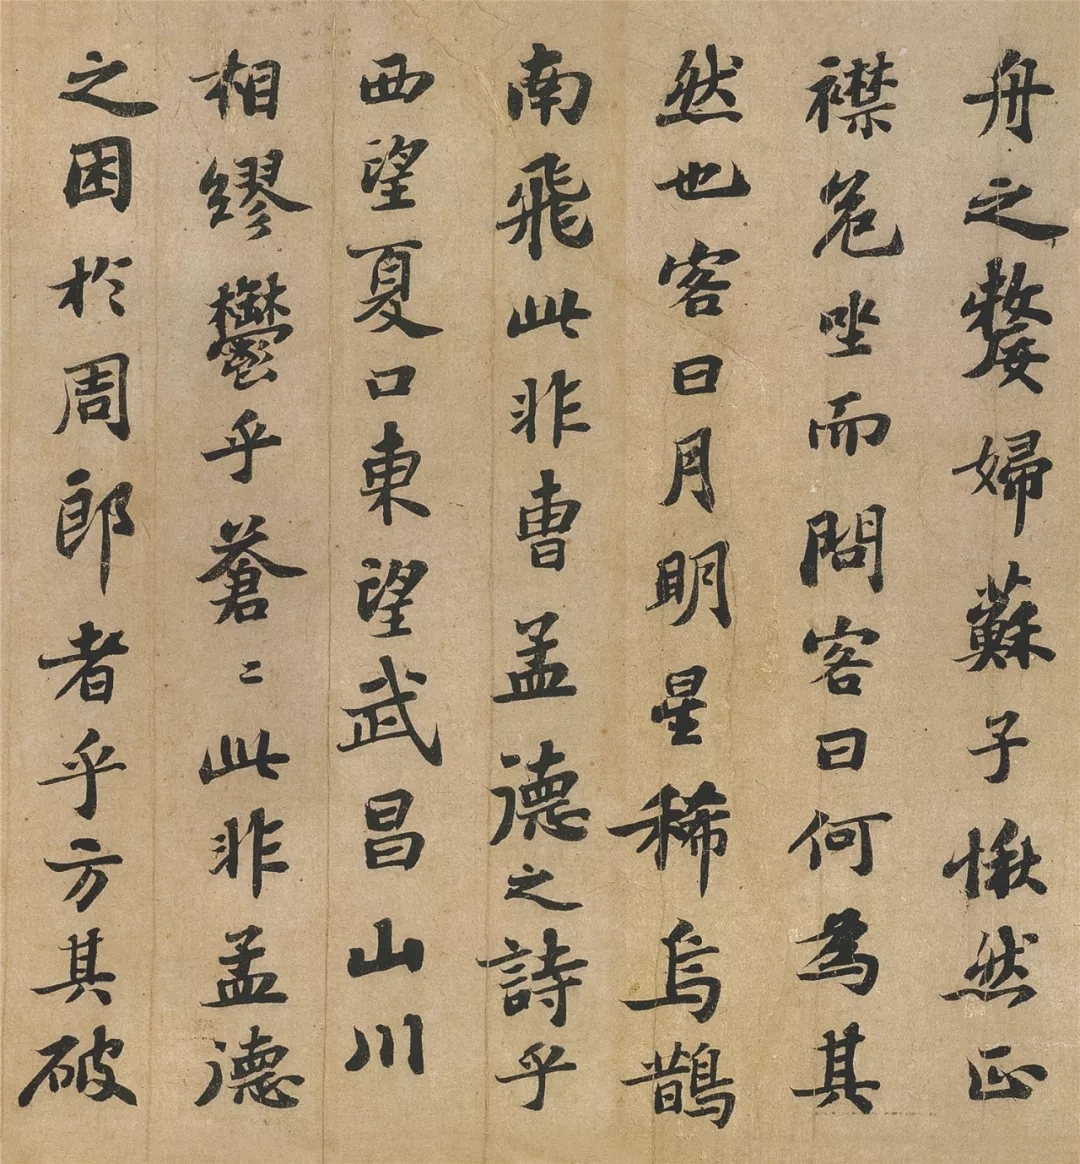 舟之嫠婦蘇子愀然正
襟危坐而問客曰何為其
然也客曰月明星稀烏鵲
南飛此非曹孟德之詩乎
西望夏口東望武昌山川
相繆鬱乎蒼〻此非孟德
之困於周郎者乎方其破